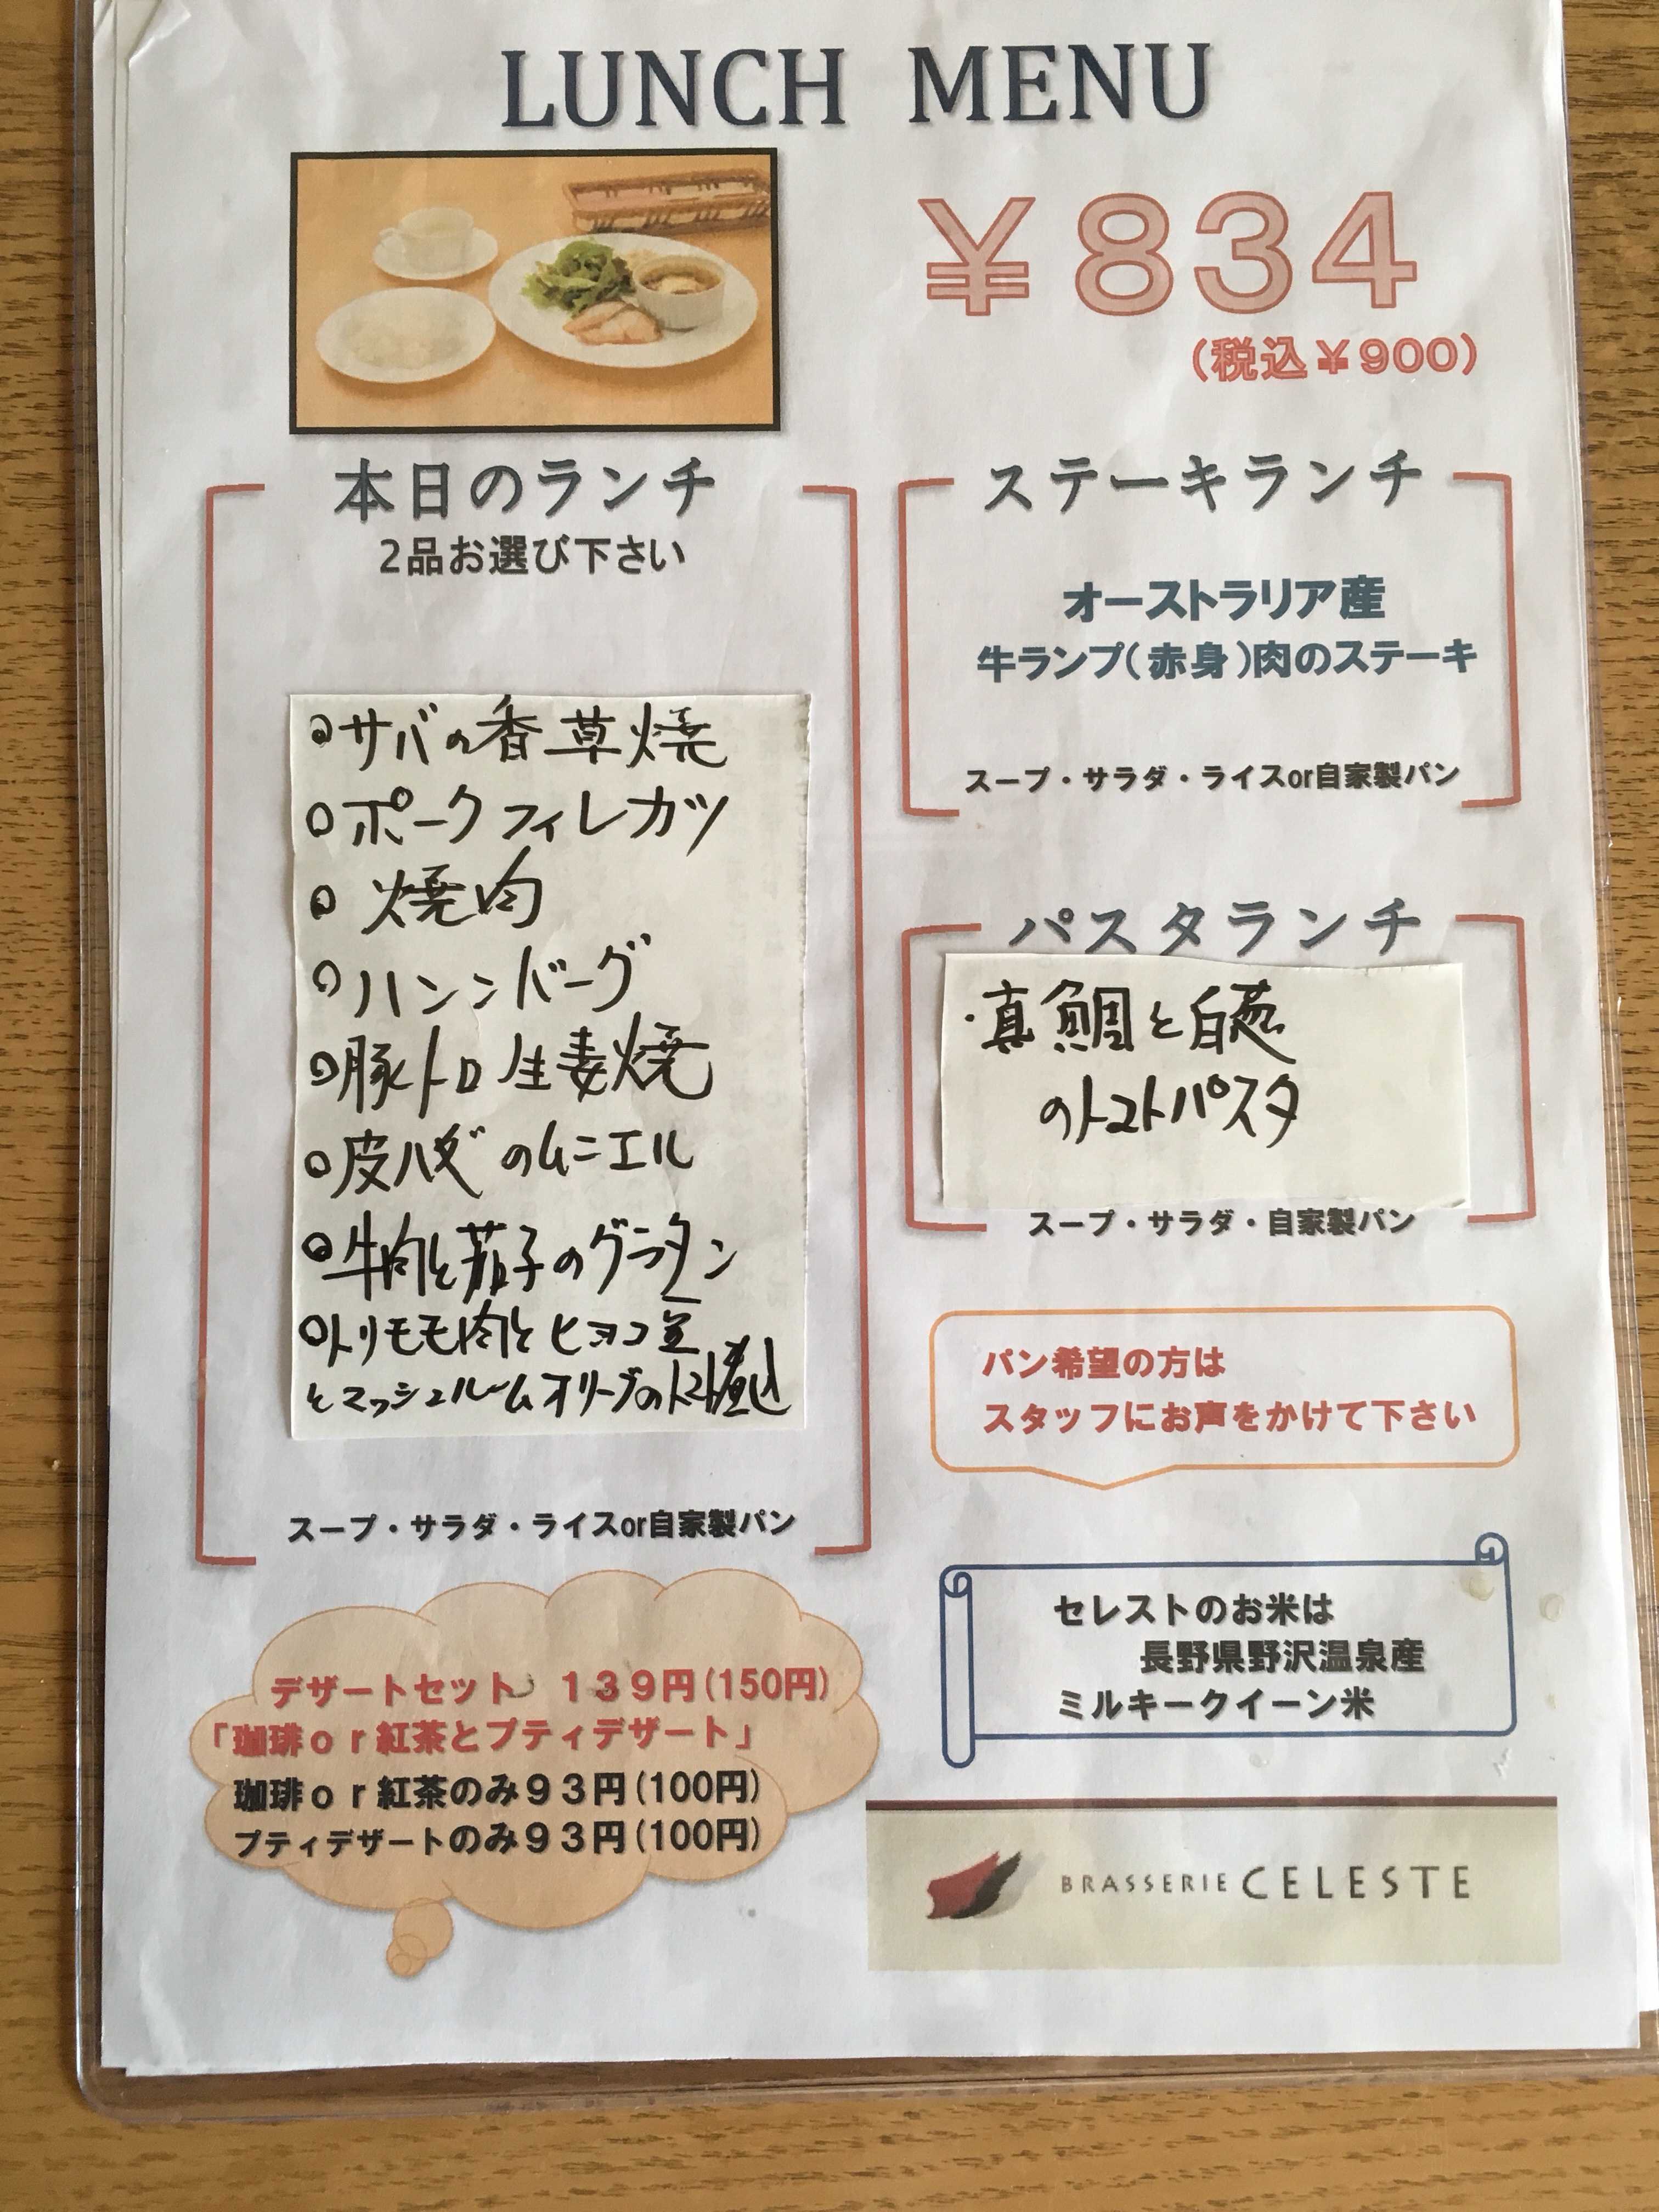 LUNCH MENU
￥834
(税込￥900)
本日のランチ
2品お選び下さい
サバの香草焼
ポークフィレカツ
焼肉
ハンバーグ
豚トロ生姜焼
皮ハギのムニエル
牛肉と茄子のグラタン
トリモモ肉とヒヨコ豆
とマッシュルームオリーブのトマト煮込
スープ・サラダ・ライスor自家製パン
ステーキランチ
オーストラリア産
牛ランプ(赤身)肉のステーキ
スープ・サラダ・ライスor自家製パン
パスタランチ
・真鯛と白葱
のトマトパスタ
スープ・サラダ・自家製パン
パン希望の方は
スタッフにお声をかけて下さい
セレストのお米は
長野県野沢温泉産
ミルキークイーン米
デザートセット 139円(150円)
「珈琲or紅茶とプティデザート」
珈琲or紅茶のみ93円(100円)
プティデザートのみ93円(100円)
BRASSERIE CELESTE